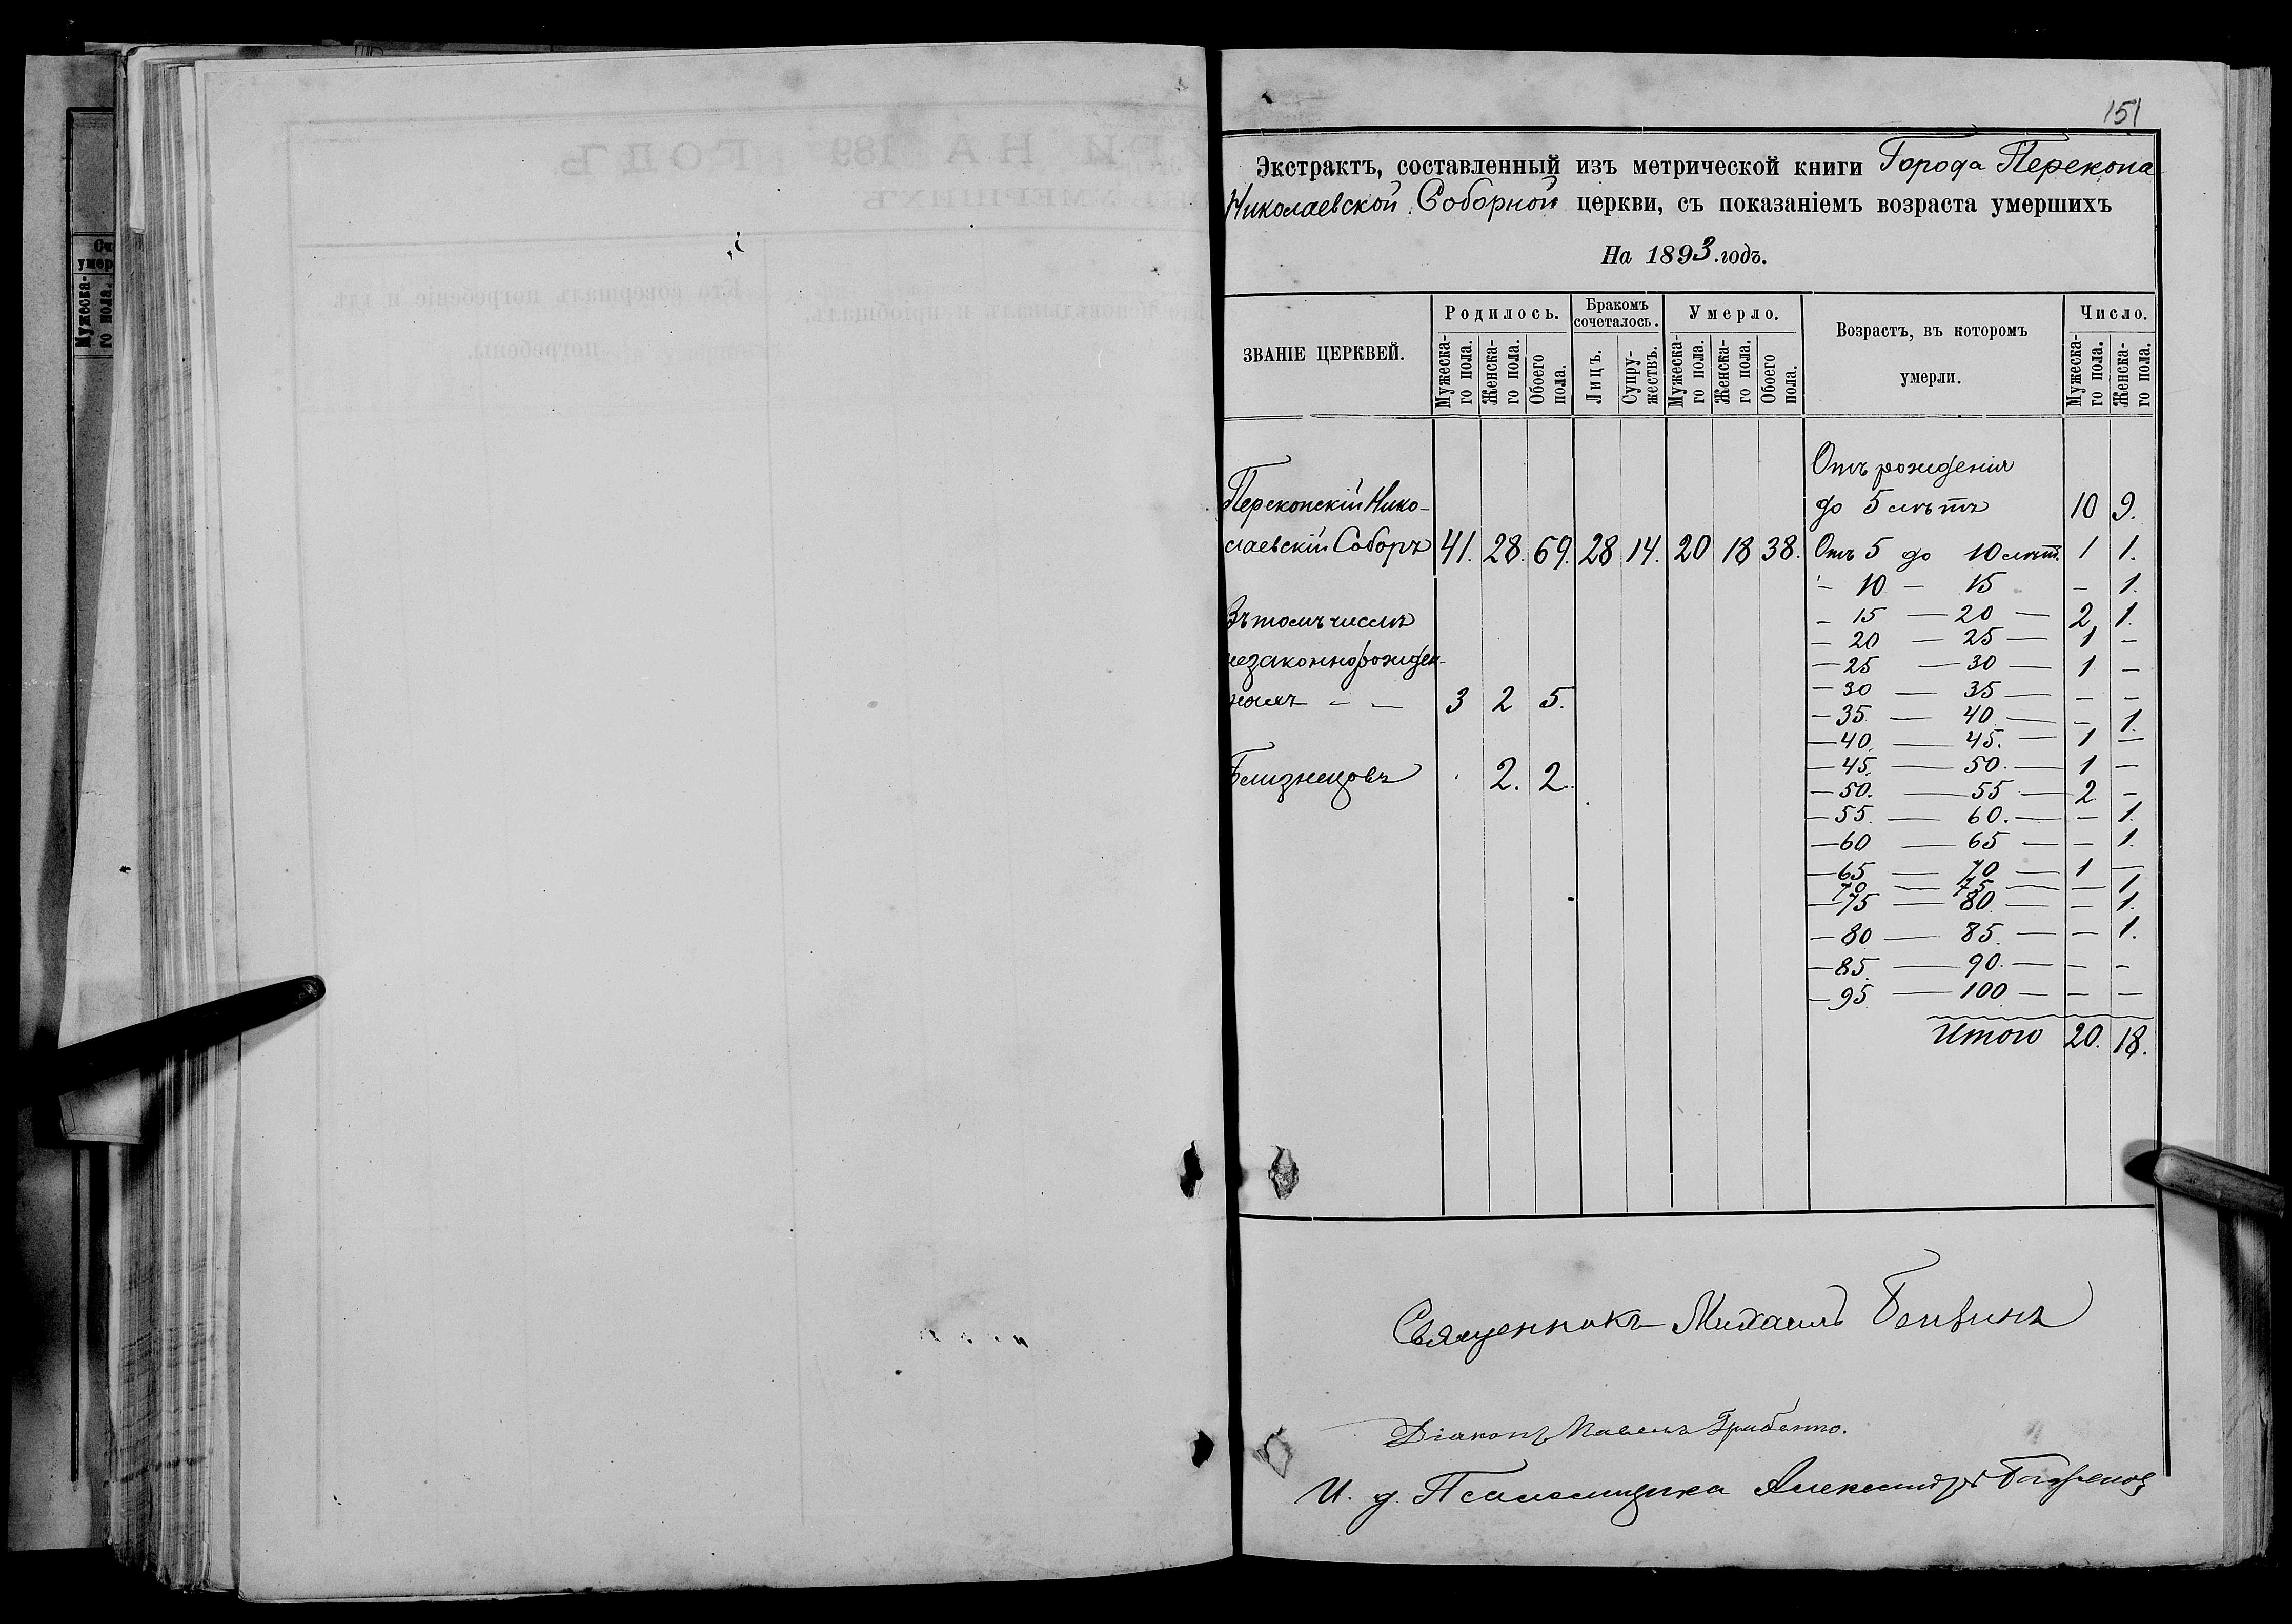 151
Экстрактъ, составленный изъ метрической книги Города Перекопа
Николаевской Соборной церкви, съ показаніемъ возраста умершихъ
На 1893 годъ.
ЗВАНІЕ ЦЕРКВЕЙ. Родилось. Бракомъ сочеталось. Умерло. Возрастъ, въ которомъ умерли. Число.
Мужеска-го пола. Женска-го пола. Обоего пола. Лицъ. Супру-жествъ. Мужеска-го пола. Женска-го пола. Обоего пола. Мужеска-го пола. Женска-го пола.
Отъ рожденія
Перекопскій Нико- до 5 лѣтъ 10 9.
лаевскій Соборъ 41. 28. 69. 28 14. 20 18 38. Отъ 5 до 10 лѣтъ. 1 1.
— 10 — 15 — 1.
Въ томъ числѣ — 15 — 20 — 2 1.
— 20 — 25 — 1 —
незаконнорожден- — 25 — 30 — 1 —
— 30 — 35 — — —
ныхъ — — 3 2 5.
— 35 — 40 — — 1.
— 40. — 45. — 1 —
Близнецовъ . 2. 2.
— 45. — 50. — 1 —
— 50. — 55 — 2 —
— 55. — 60. — — 1.
— 60 — 65 — — 1.
— 65 — 70 — 1 —
70 — 75 — — 1
— 75 — 80 — — 1.
— 80 — 85. — — 1.
— 85. — 90. — — —
— 95 — 100 — — —
Итого 20. 18.
Священникъ Михаилъ
Діаконъ Павелъ
И. д. Псаломщика Александръ
Сч
умер
Мужеска-
го пола.